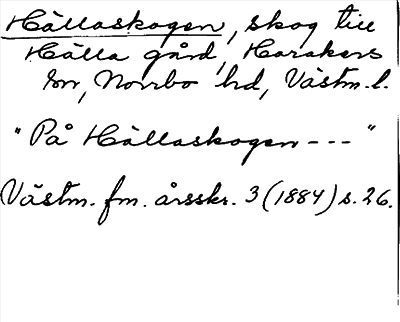 Hällaskogen, skog till
Hälla gård, Harakers
sn, Norrbo hd, Västm. l.
"På Hällaskogen - - - "
Västm. fm. årsskr. 3 (1884) s. 26.